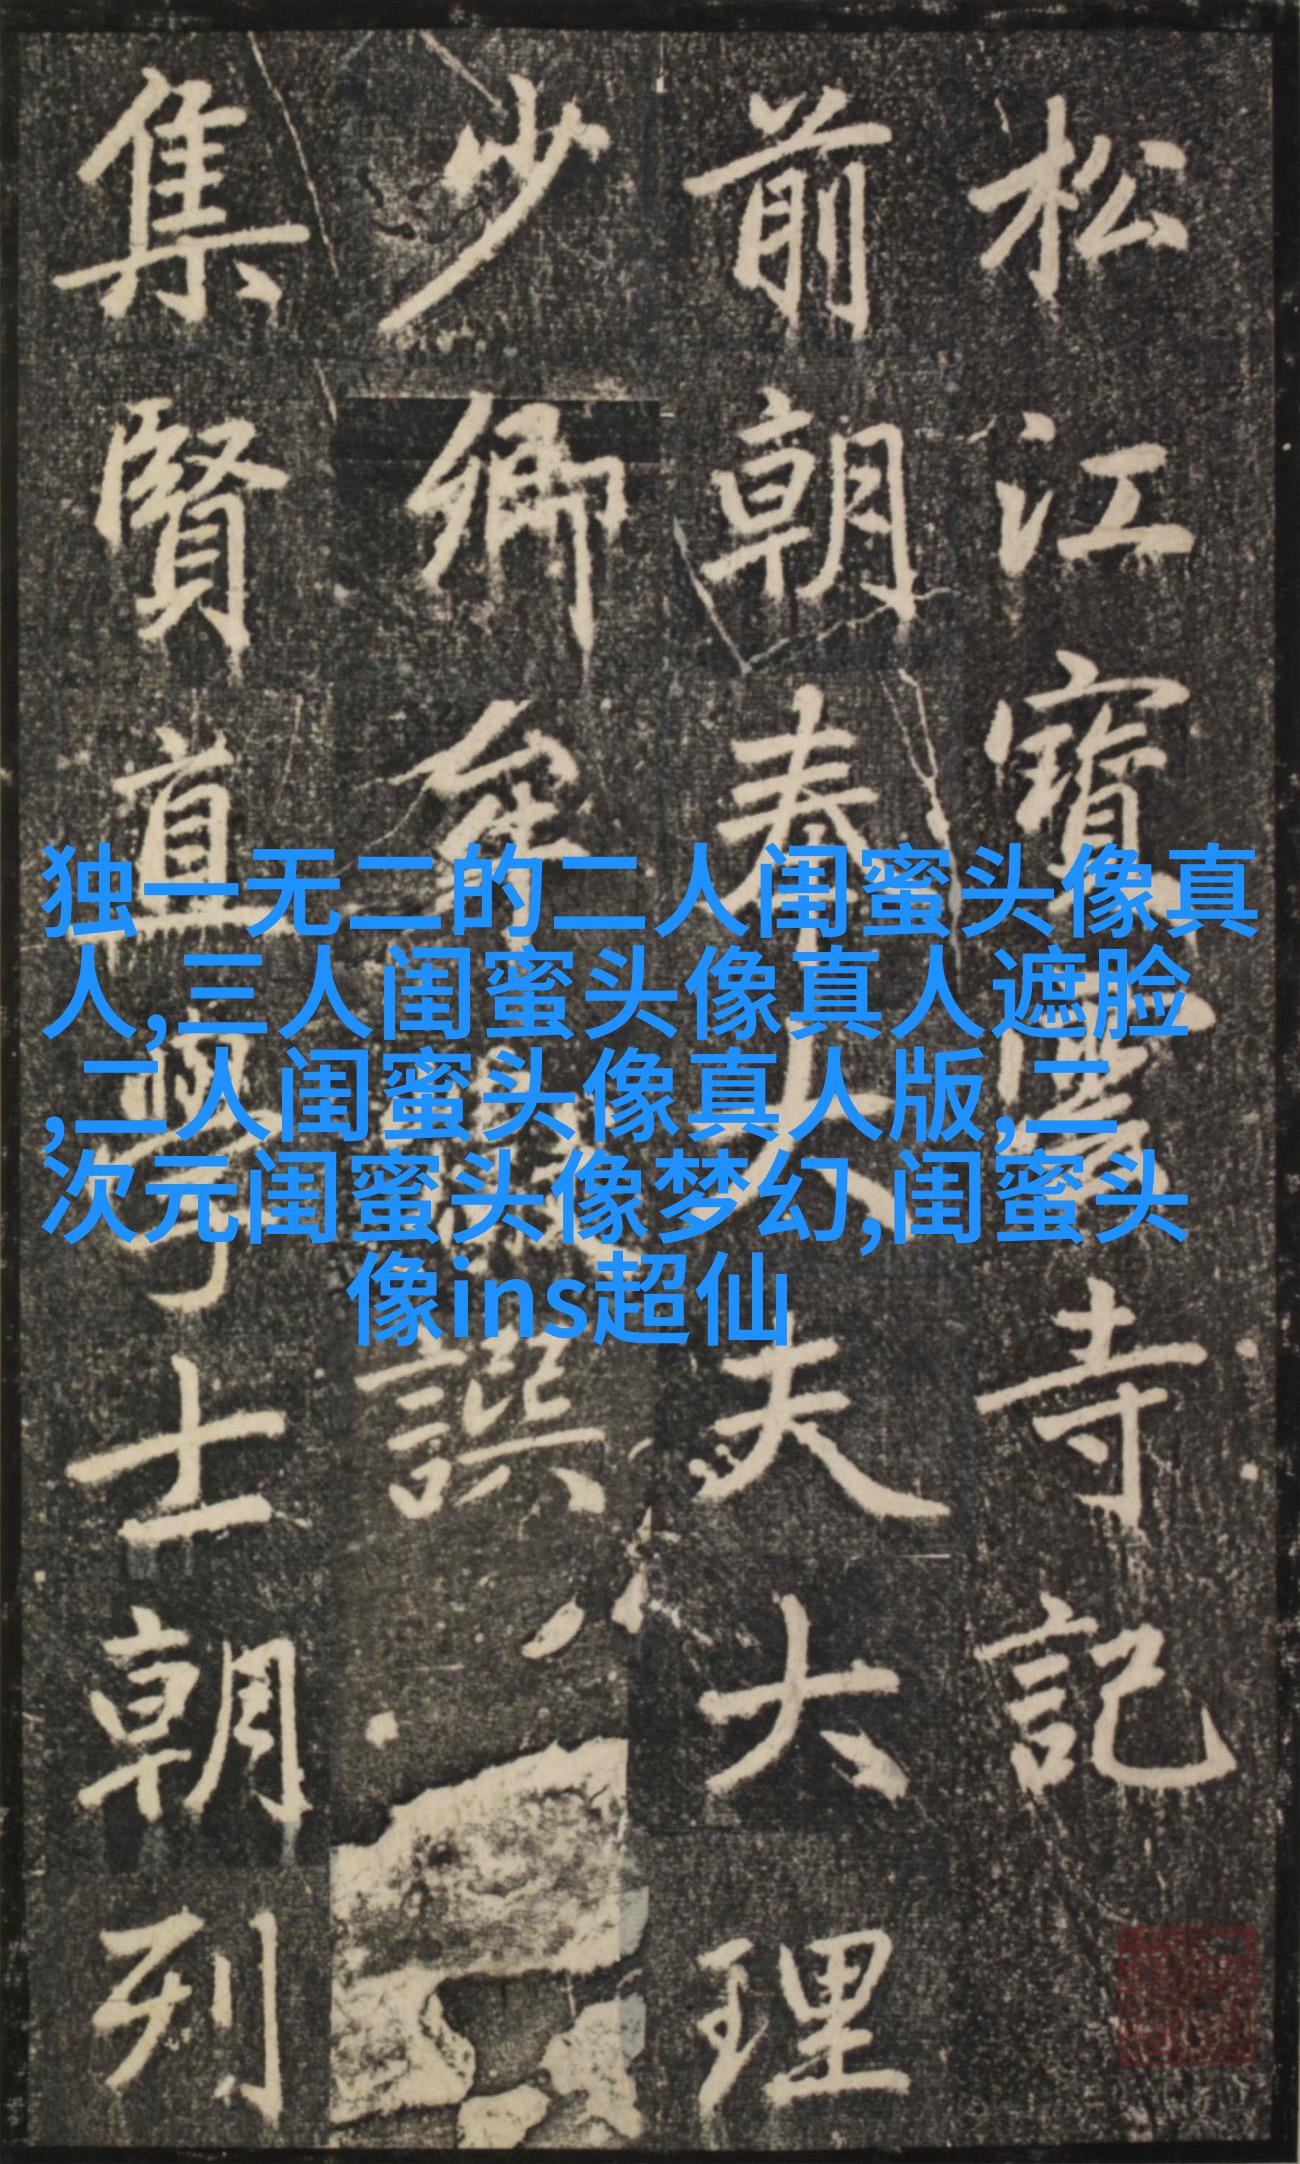 松江寶雲寺記
前朝奉大夫大理
少卿牟巘譔
集賢直學士朝列
独一无二的二人闺蜜头像真
人,三人闺蜜头像真人遮脸
,二人闺蜜头像真人版,二
次元闺蜜头像梦幻,闺蜜头
像ins超仙